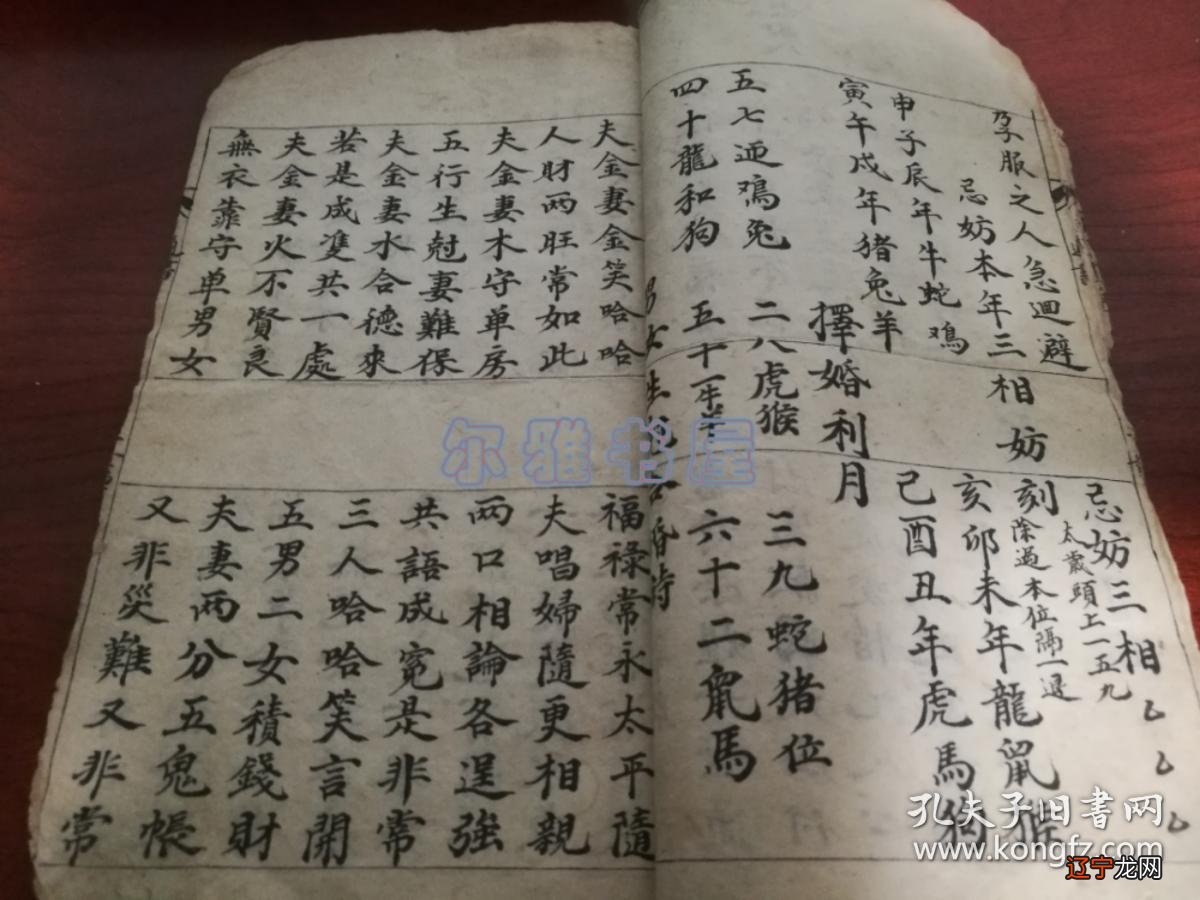 孕服之人急迴避
忌妨本年三
相妨
忌妨三相
太歲頭上一五九
刻除過本位隔一退
申子辰年牛蛇鳮
寅午戌年猪兔羊
亥卯未年龍鼠猴
己酉丑年虎馬狗
擇婚利月
五七迎鳮兔
二八虎猴
三九蛇猪位
四十龍和狗
五十一牛羊
六十二鼠馬
男女生
夫金妻金笑哈哈
福祿常永太平隨
人財两旺常如此
夫唱婦隨更相親
夫金妻木守单房
两口相論各逞強
五行生尅妻難保
共語成冤是非常
夫金妻水合德來
三人哈哈笑言開
若是成双共一處
五男二女積錢財
夫金妻火不賢良
夫妻两分五鬼帳
無衣靠守单男女
又非災難又非常
尔雅书屋
孔夫子旧书网
www.kongfz.com
辽宁龙网